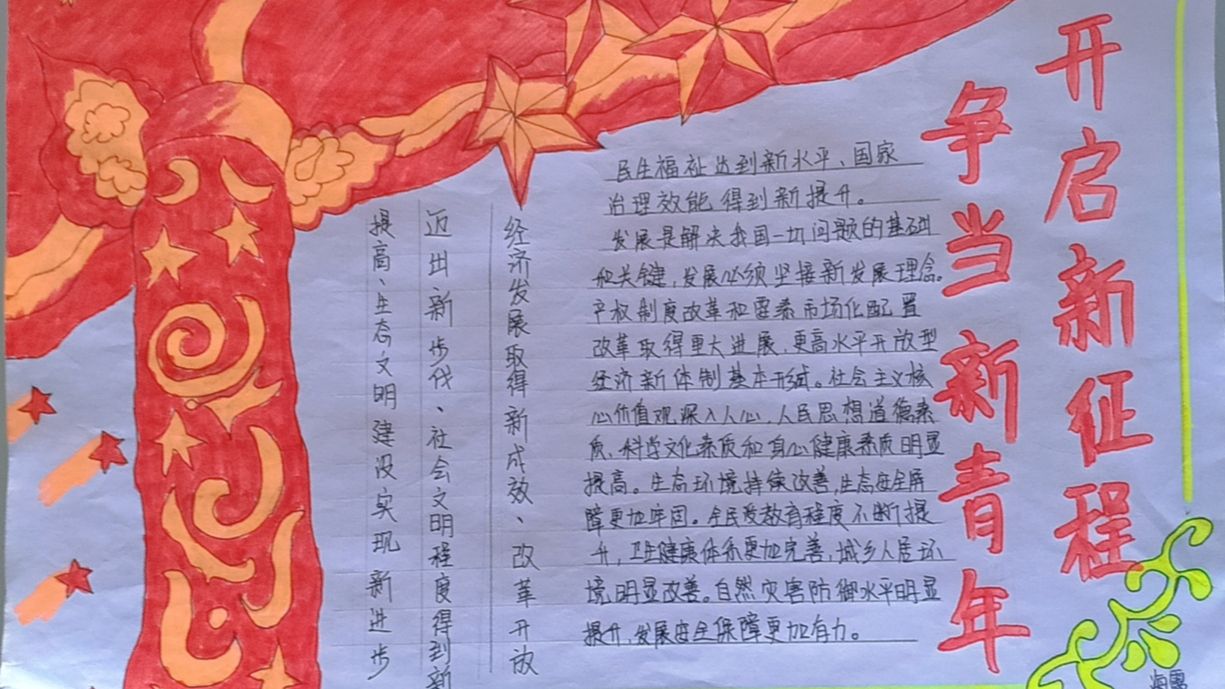 开启新征程
争当新青年
民生福祉达到新水平、国家
治理效能得到新提升。
发展是解决我国一切问题的基础
和关键,发展必须坚接新发展理念。
产权制度改革和要素市场化配置
改革取得重大进展,更高水平开放型
经济新体制基本形成。社会主义核
心价值观深入人心,人民思想道德素
质、科学文化素质和身心健康素质明显
提高。生态环境持续改善,生态安全屏
障更加牢固。全民受教育程度不断提
升,卫生健康体系更加完善,城乡人居环
境明显改善。自然灾害防御水平明显
提升,发展安全保障更加有力。
经济发展取得新成效、改革开放
迈出新步伐、社会文明程度得到新
提高、生态文明建设实现新进步